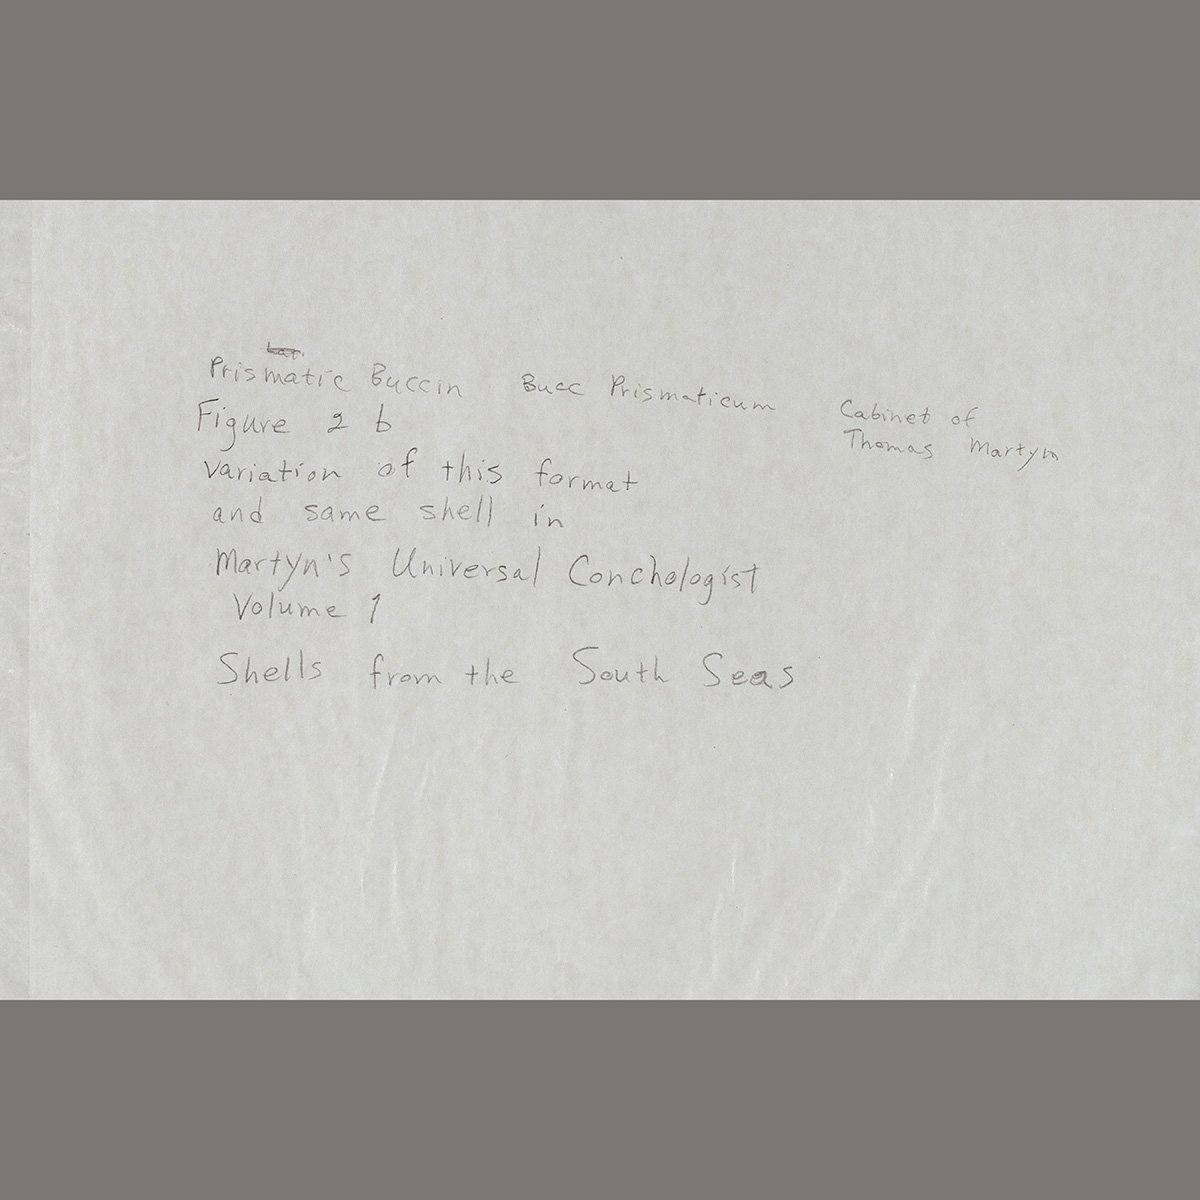 Prismatic Buccin Bucc Prismaticum Cabinet of
Thomas Martyn
Figure 2 b
variation of this format
and same shell in
Martyn's Universal Conchologist
Volume 1
Shells from the South Seas